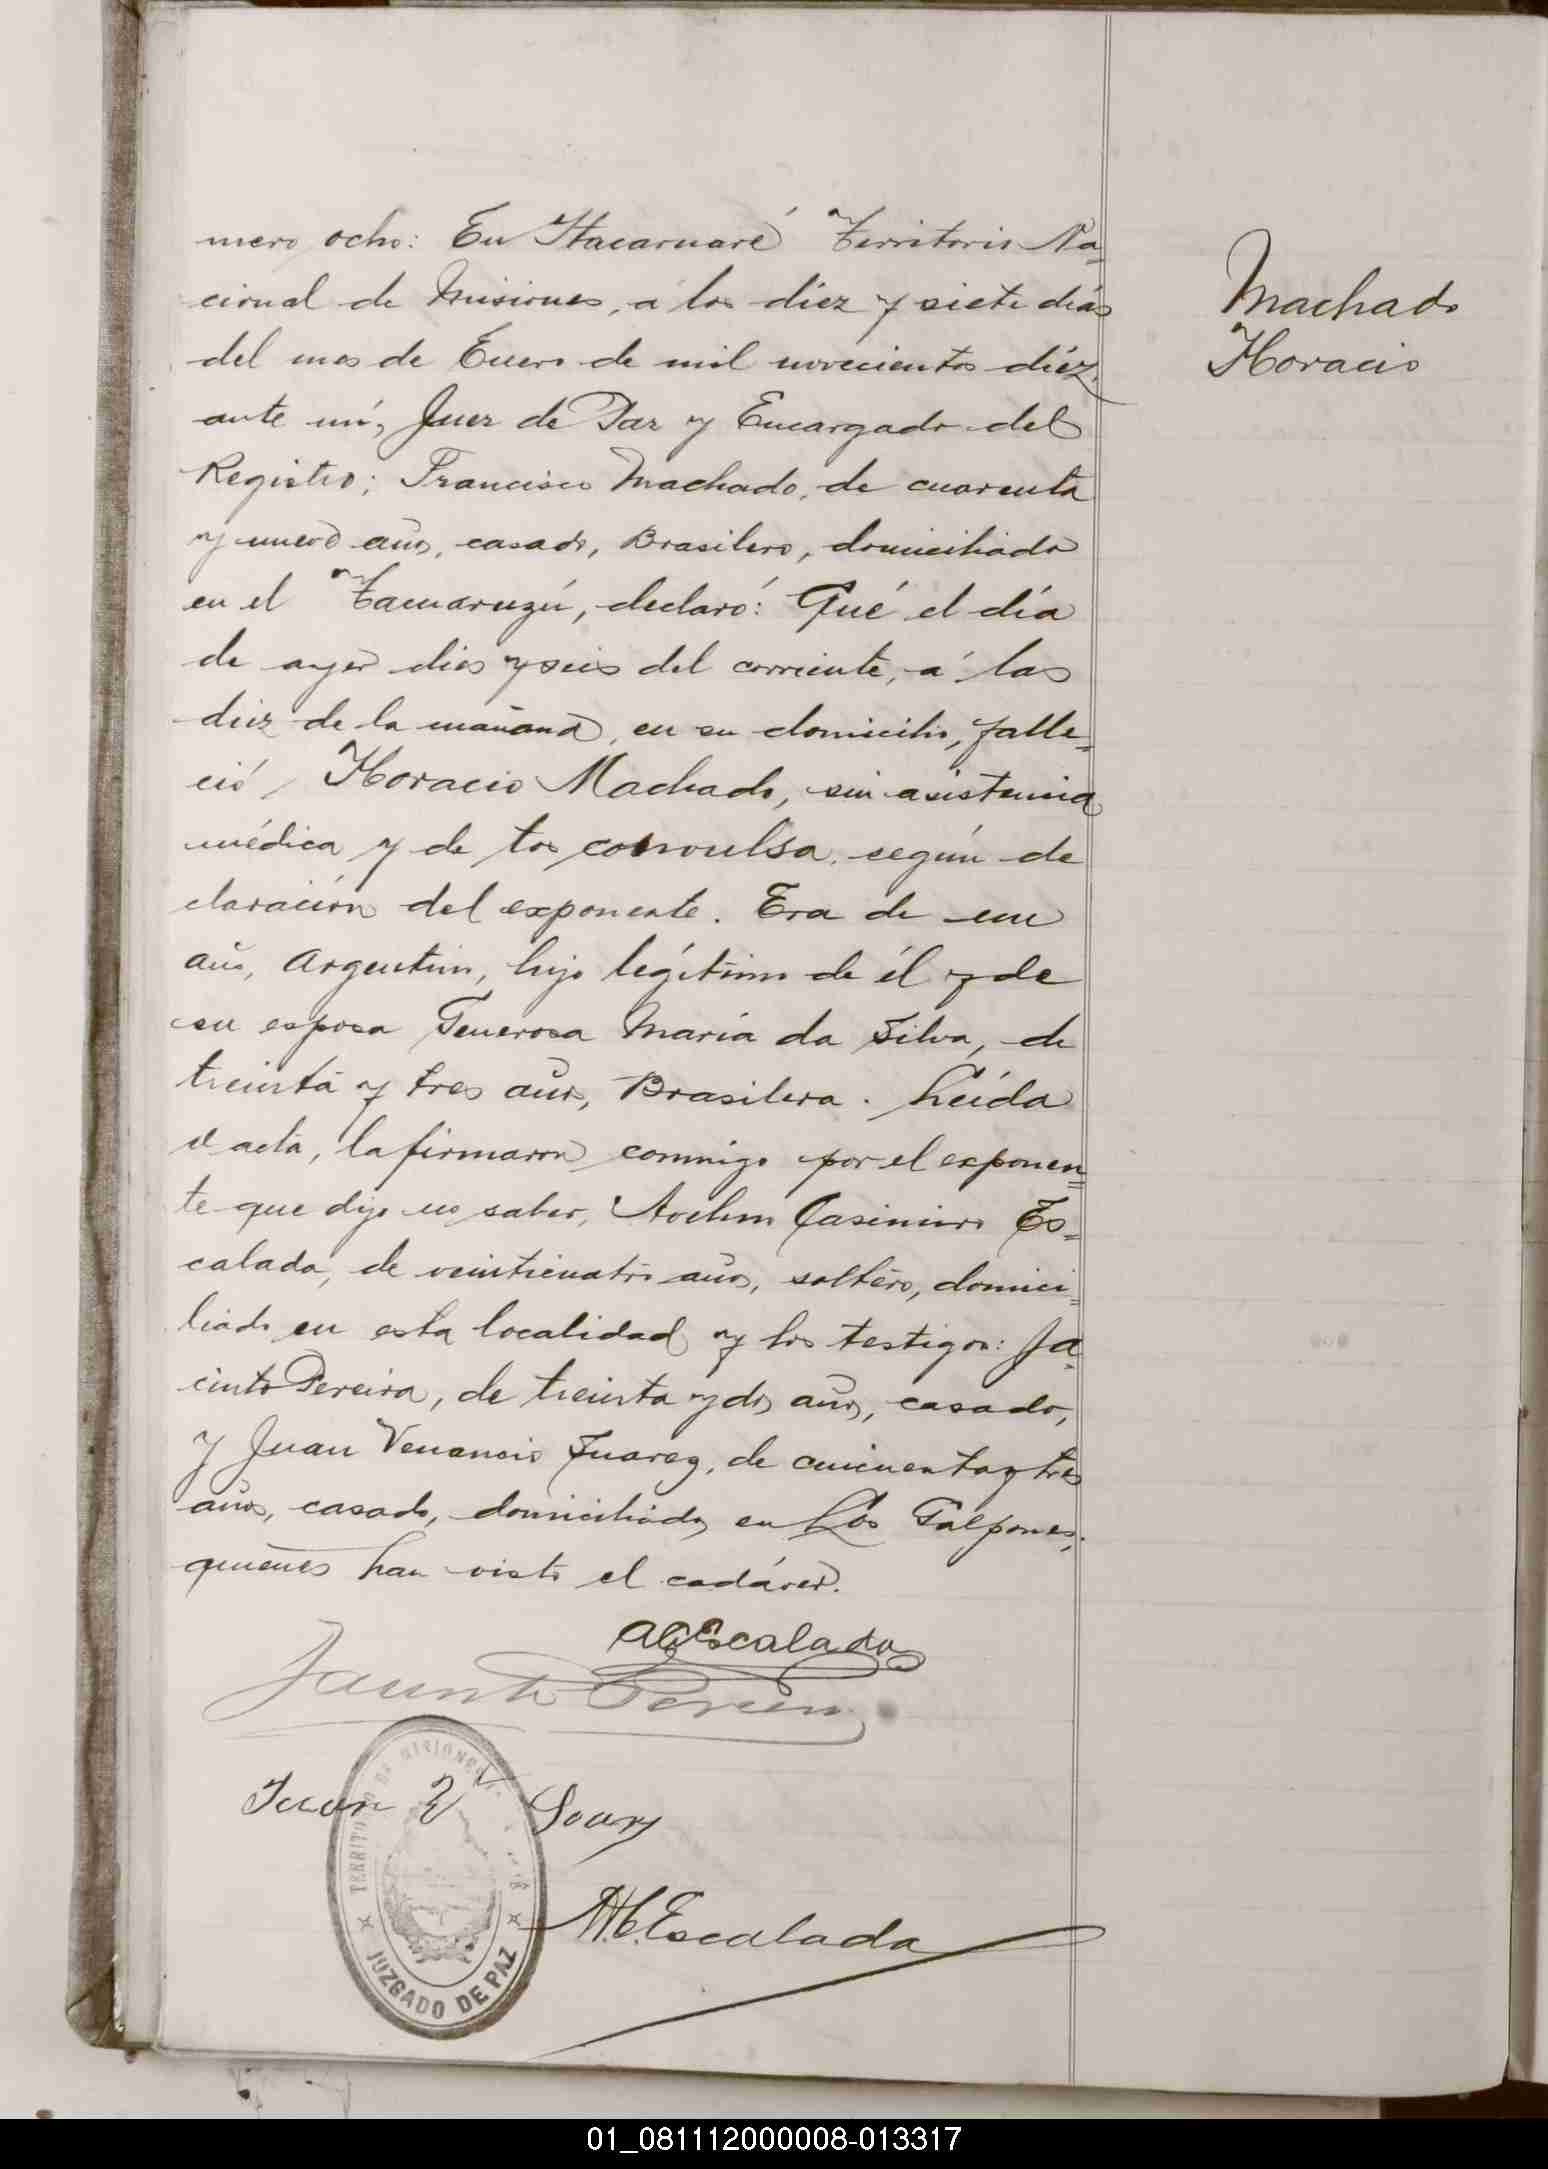 mero ocho: En Itacaruaré Territorio Na=
cional de Misiones, a los diéz y siete días
del mes de Enero de mil novecientos diéz,
ante mí, Juez de Paz y Encargado del
Registro; Francisco Machado, de cuarenta
y nueve años, casado, Brasilero, domiciliado
en el Tacuaruzú, declaró: Qué el día
de ayer dies y seis del corriente, a las
diez de la mañana, en su domicilio, falle=
ció, Horacio Machado, sin asistencia
médica y de tos convulsa, según de
claración del exponente. Era de un
año, Argentino, hijo legítimo de él y de
su esposa Generosa María da Silva, de
treinta y tres años, Brasilera. Leída
el acta, la firmaron conmigo por el exponen=
te que dijo no saber, Avelino Casimiro Es=
calada, de veinticuatro años, soltero, domici=
liado en esta localidad y los testigos: Ja=
cinto Pereira, de treinta y dos años, casado,
y Juan Venancio Suarez, de cincuenta y tres
años, casado, domiciliados en Los Galpones,
quienes han visto el cadáver.
Machado
Horacio
A C Escalada
Jacinto Pereira
Juan V
TERRITORIO DE MISIONES
JUZGADO DE PAZ
H. C. Escalada
01_081112000008-013317